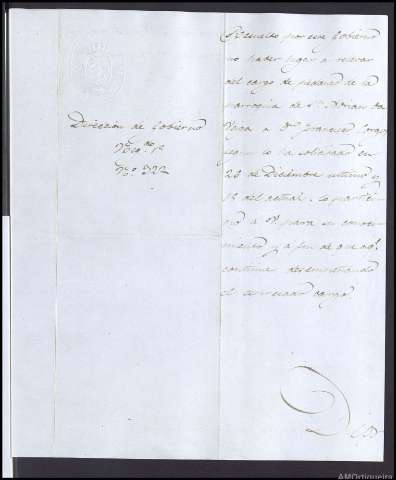 Dirección de Gobierno
Negcdo. 1º
Nº 322
Resuelto por este Gobierno
no haber lugar a relevar
del cargo de pedáneo de la
parroquia de Sn. Adrian de
Veiga a Dn. Francisco
segun lo ha solicitado en
28 de Diciembre ultimo y
15 del actual, lo partici-
po a V. para su conoci-
miento y a fin de que
continue desempeñando
el espresado cargo.
Dios
AMOrtigueira